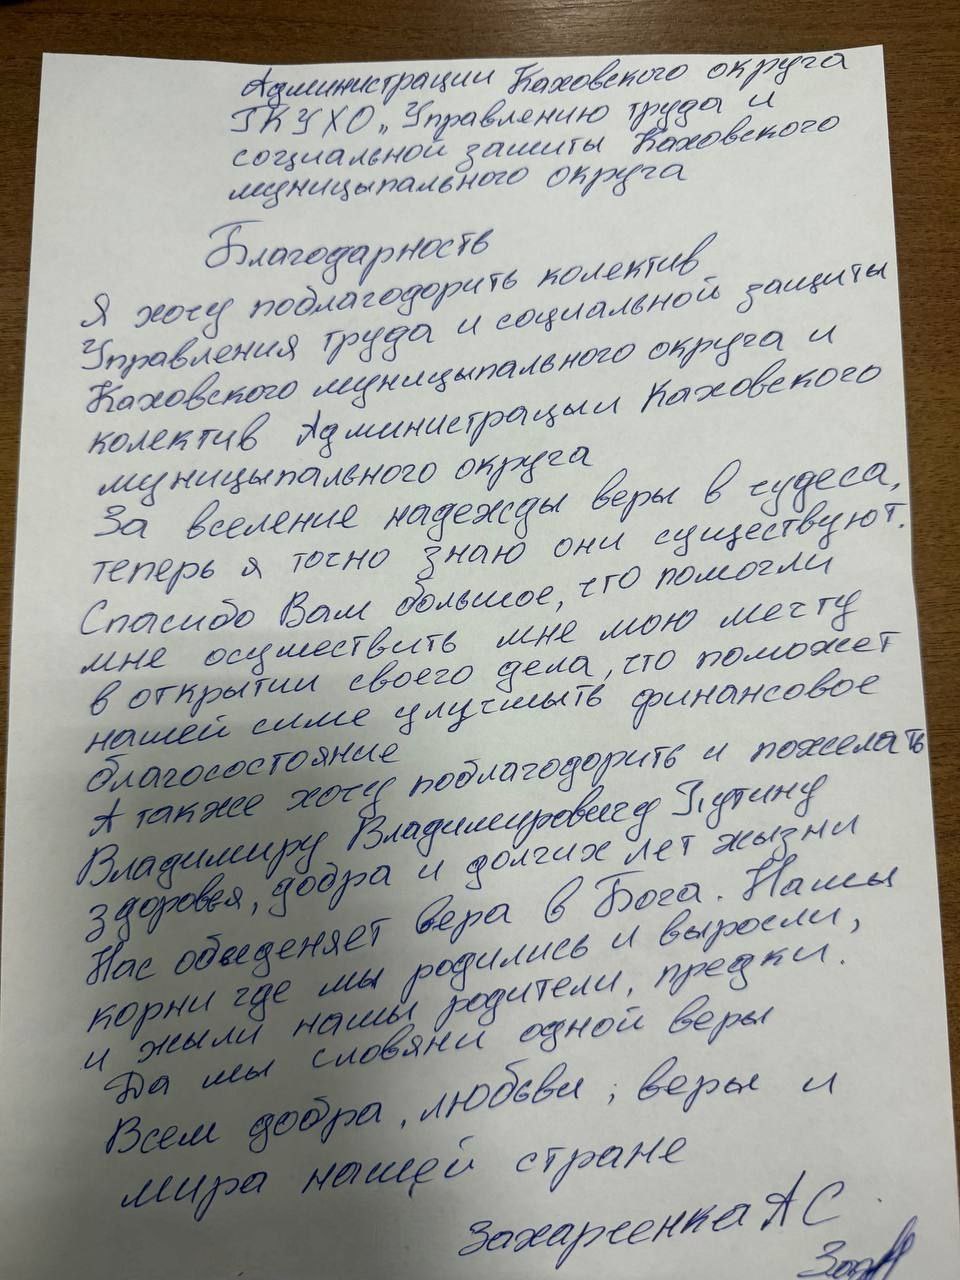 Администрации Каховского округа
ГКУХО „Управлению труда и
социальной зашиты Каховского
муницыпального округа
Благодарность
Я хочу поблагодорить колектив
Управления труда и социальной защиты
Каховского муницыпального округа и
колектив Администрацыи Каховского
муницыпального округа
За вселение надежды веры в чудеса,
теперь я точно знаю они существуют.
Спасибо Вам большое, что помогли
мне осуществить мне мою мечту
в открытии своего дела, что поможет
нашей симе улучшыть финансовое
благосостояние
А также хочу поблагодорить и пожелать
Владимиру Владимировичу Путину
здоровья, добра и долгих лет жызни
Нас обьеденяет вера в Бога. Нашы
корни где мы родились и выросли,
и жыли нашы родители, предки.
Да мы словяни одной веры
Всем добра, любьви, веры и
мира нашей стране
Захарченка А С